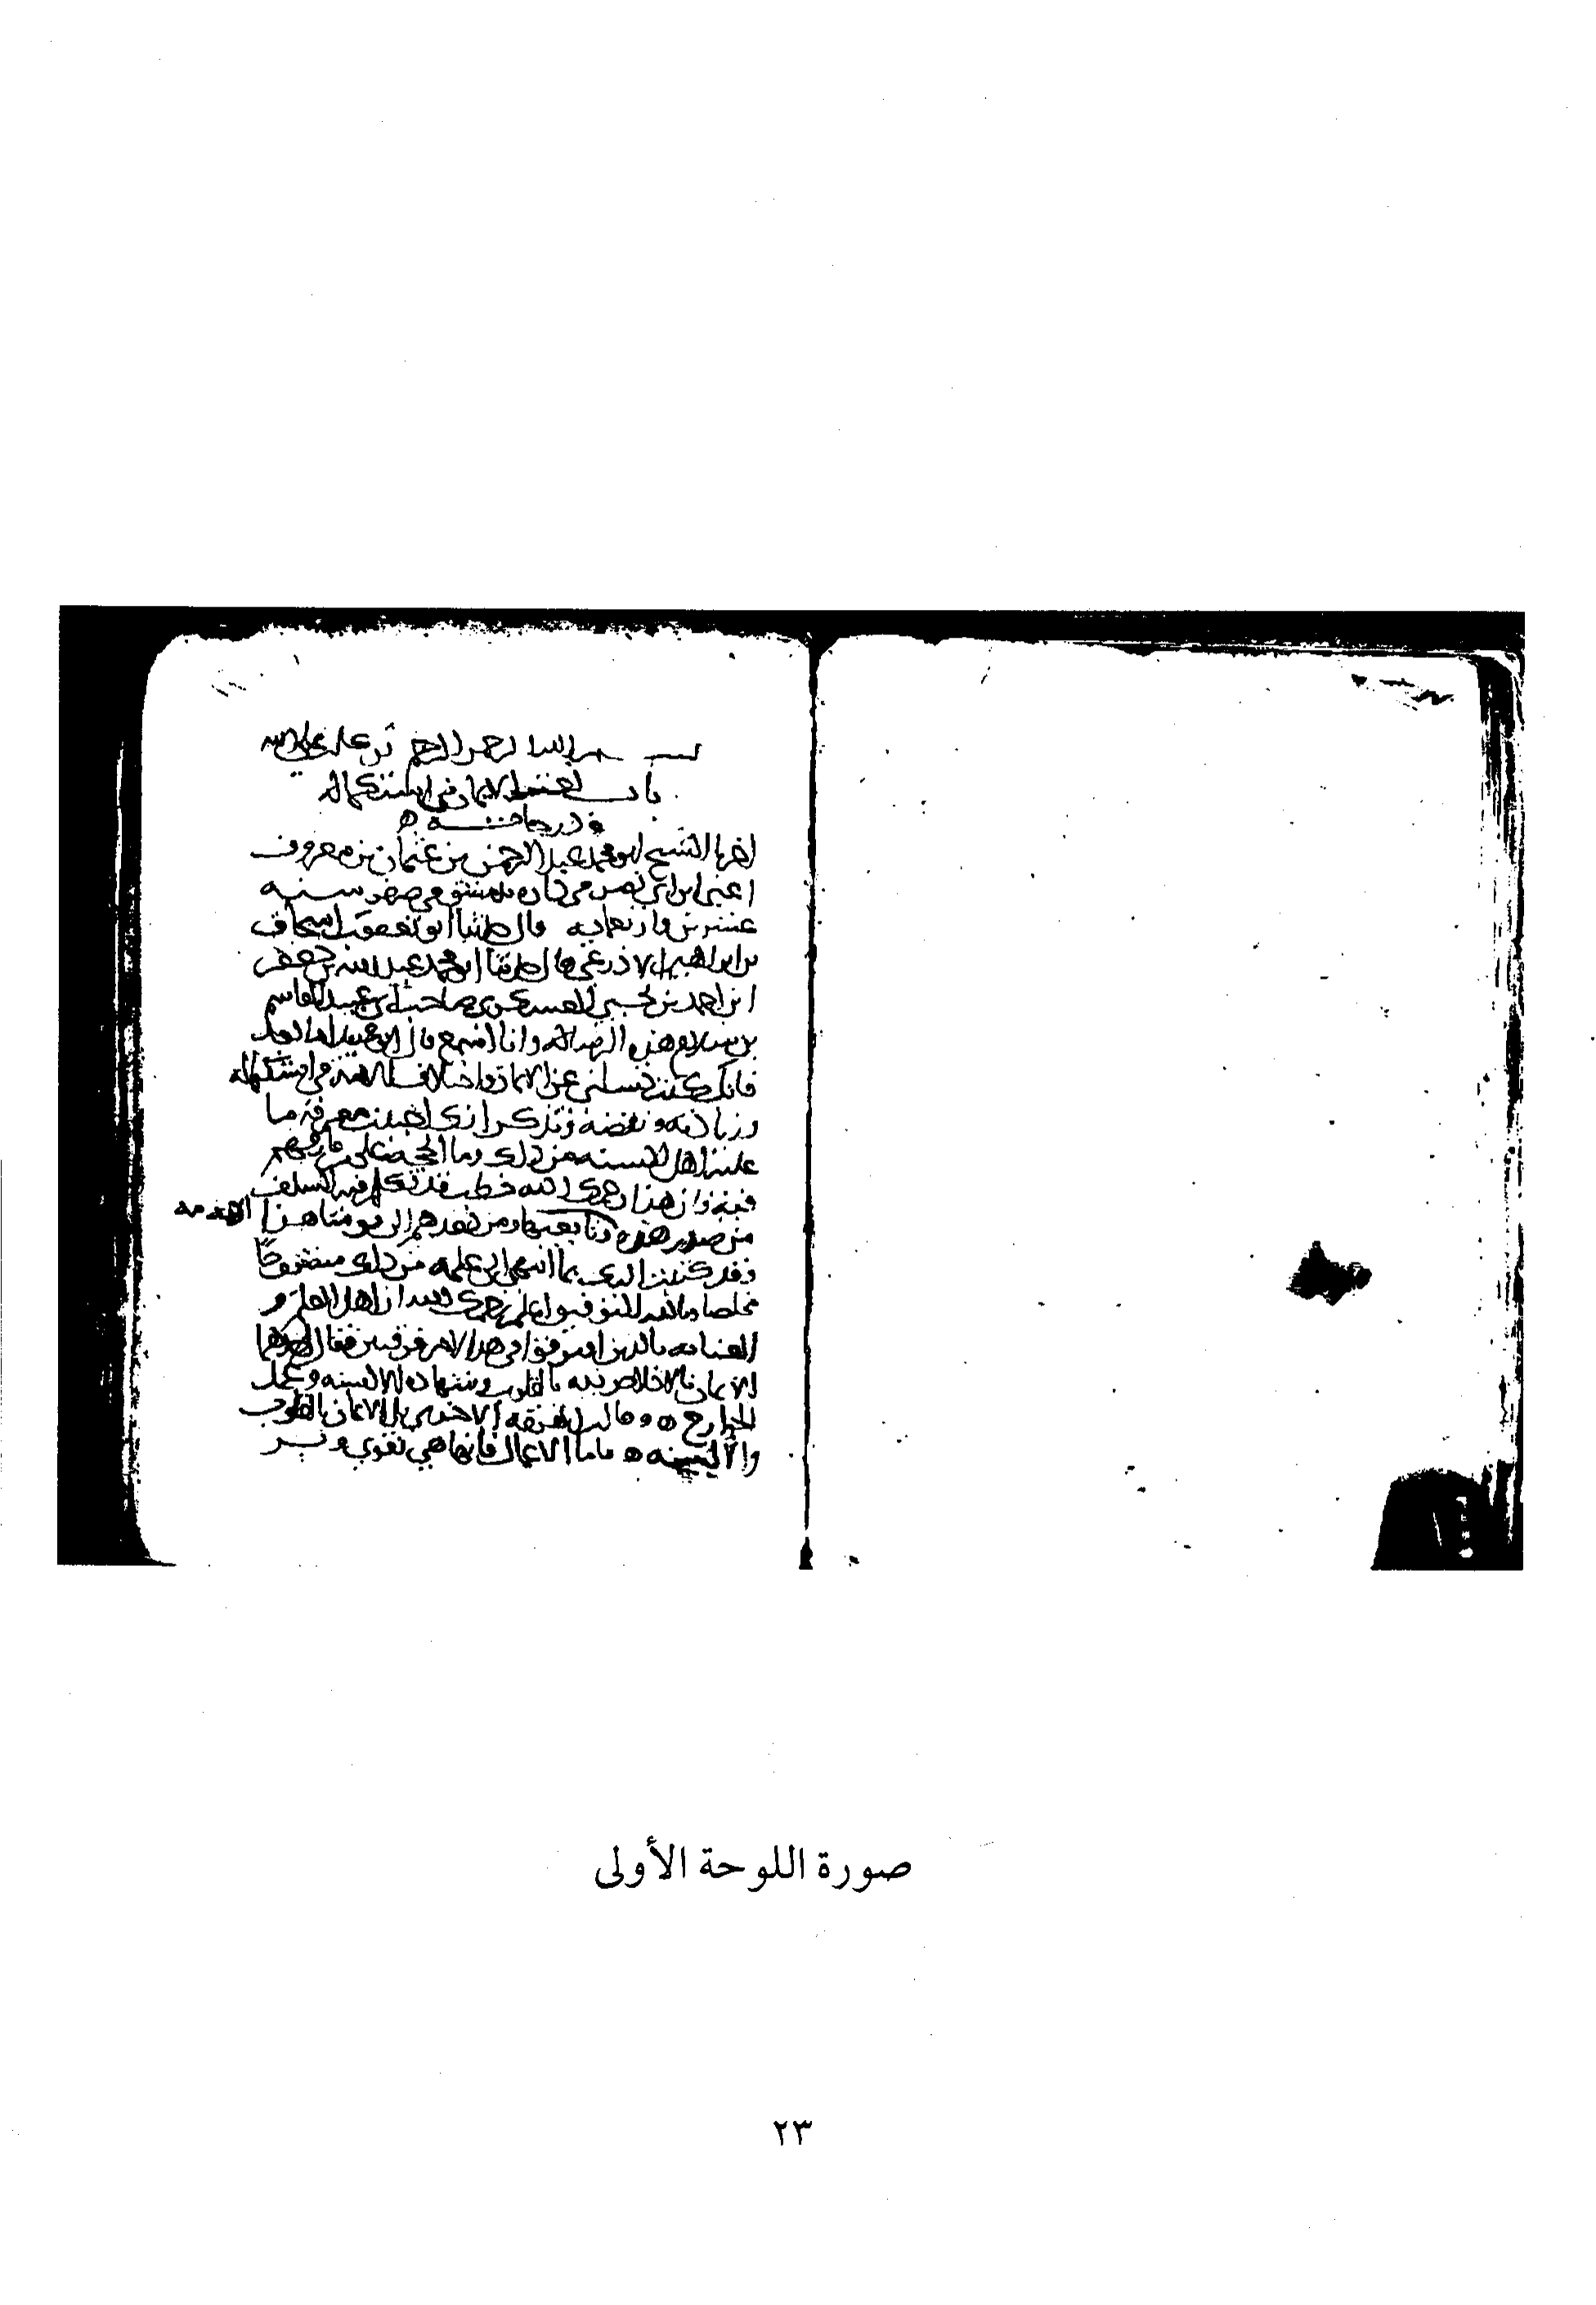 بسم الله الرحمن الرحيم توكلت على الله
باب نعت الايمان في استكماله
ودرجاته ه
اخبرنا الشيخ ابو محمد عبد الرحمن بن عثمان بن معروف
اعني ابن ابي نصر في داره بدمشق في صفر سنه
عشرين واربعمايه قال حدثنا ابو يعقوب اسحاق
بن ابراهيم الاذرعي قال حدثنا ابو محمد عبد الله بن جعفر
ابن احمد بن العسكري صاحب ابي عبيد القاسم
بن سلام هذه الرساله وانا اسمع قال ابو عبيد اما بعد
فانك كنت تسلني عن الايمان واختلاف الامة في استكماله
وزيادته ونقصه وتذكر انك احببت معرفة ما
عليه اهل السنه من ذلك وما الحجة على من فارقهم
فيه فان هذا رحمك الله خطب قد تكلم فيه السلف
من صدر هذه الامه وتابعيها ومن بعدهم الى يومنا هذا
وقد كتبت اليك بما انتهى الي علمه من ذلك مشروحا
مخلصا وبالله التوفيق اعلم رحمك الله ان اهل العلم و
العنايه بالدين افترقوا في هذا الامر فرقتين فقال احدهما
الايمان بالاخلاص لله بالقلوب وشهاده الالسنه وعمل
الجوارح ه وقالت الفرقه الاخرى بل الايمان بالقلوب
والالسنه ه فاما الاعمال فانما هي تقوى وبر
صورة اللوحة الأولى
٢٣